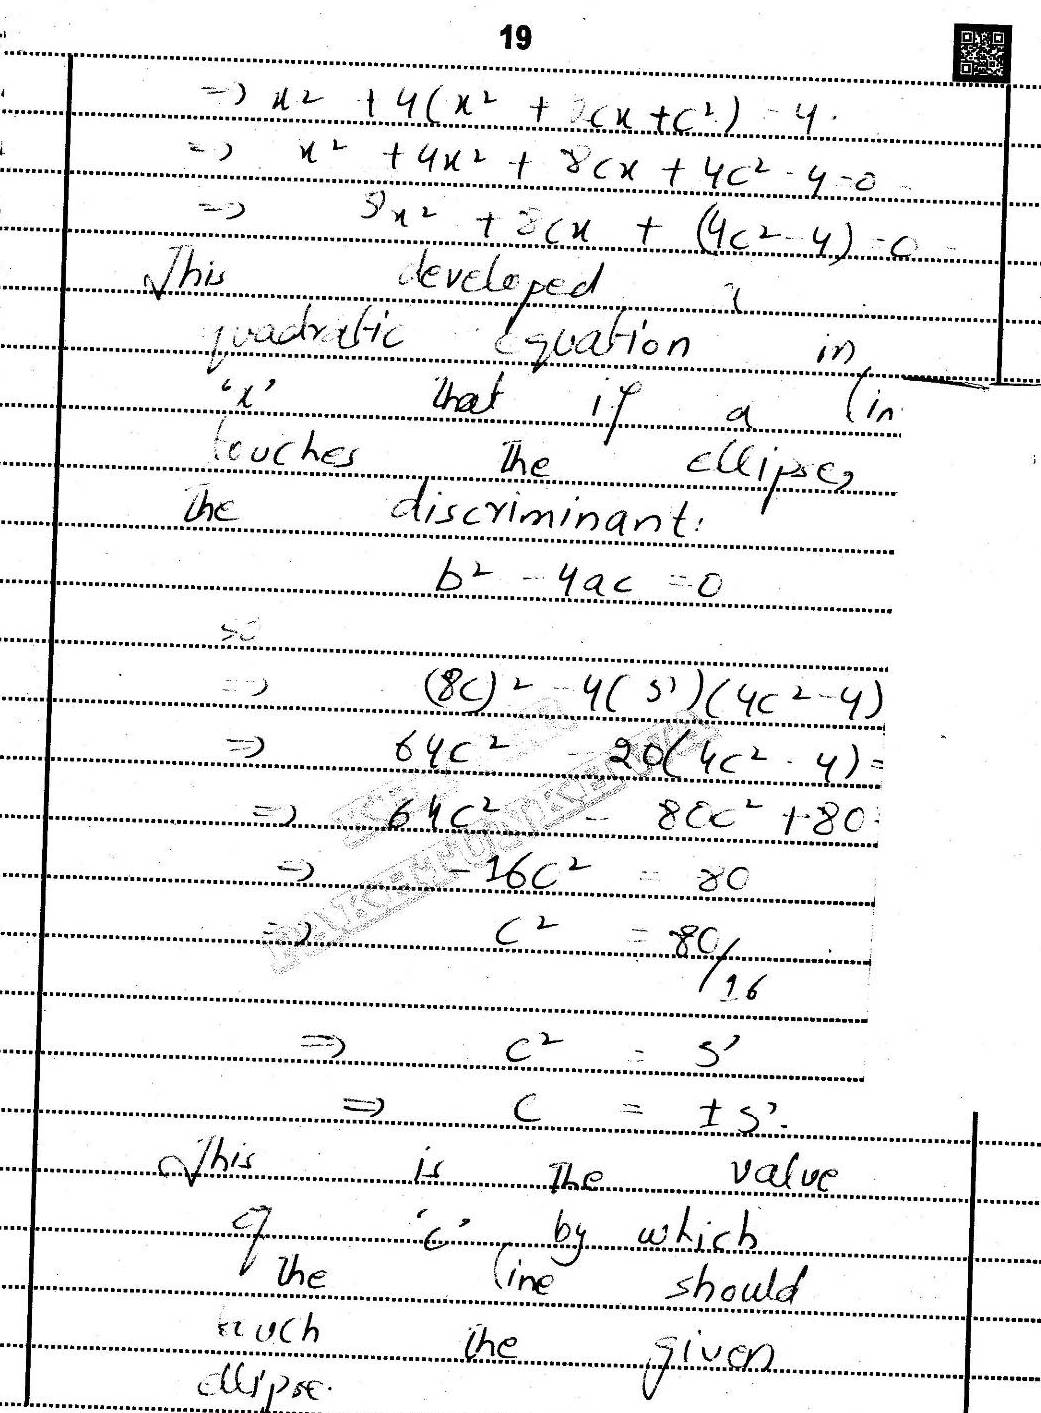 19
=> x² + 4(x² + 2cx + c²) = 4.
=> x² + 4x² + 8cx + 4c² - 4 = 0
=> 5x² + 8cx + (4c² - 4) = 0
This developed a
quadratic equation in
'x' that if a lin
touches the ellipse,
the discriminant:
b² - 4ac = 0
so
=> (8c)² - 4(5)(4c² - 4)
=> 64c² - 20(4c² - 4) =
=> 64c² - 80c² + 80
=> -16c² = 80
=> c² = 80/16
=> c² = 5
=> c = ±5.
This is the value
of 'c' by which
the line should
touch the given
ellipse.
PAKHTUNKHWA